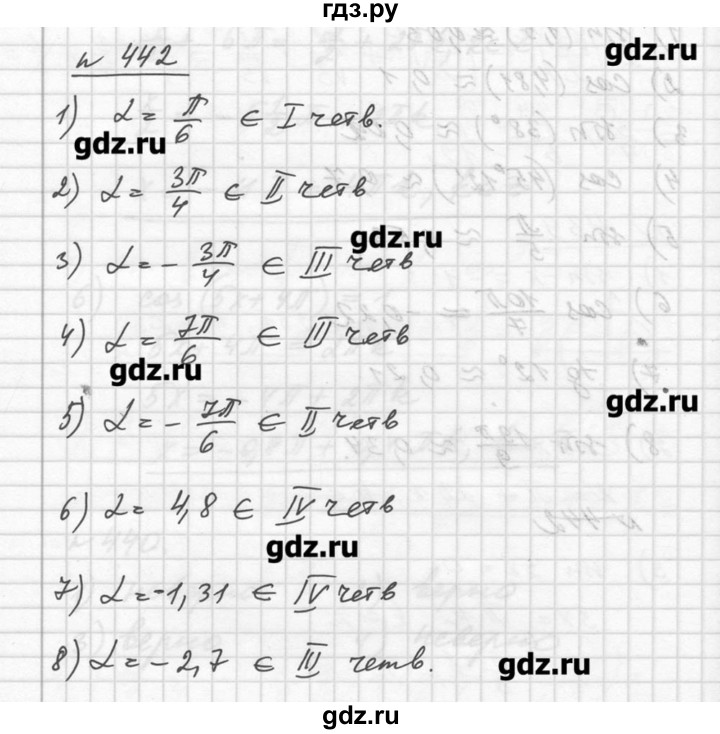 гдз.ру
gdz.ru
n 442
1) α = π/6 ∈ I четв.
gdz.ru
2) α = 3π/4 ∈ II четв
gdz.ru
3) α = - 3π/4 ∈ III четв
4) α = 7π/6 ∈ III четв
gdz.ru
5) α = - 7π/6 ∈ II четв
gdz.ru
6) α = 4,8 ∈ IV четв
gdz.ru
7) α = -1,31 ∈ IV четв
8) α = - 2,7 ∈ III четв.
gdz.ru
gdz.ru